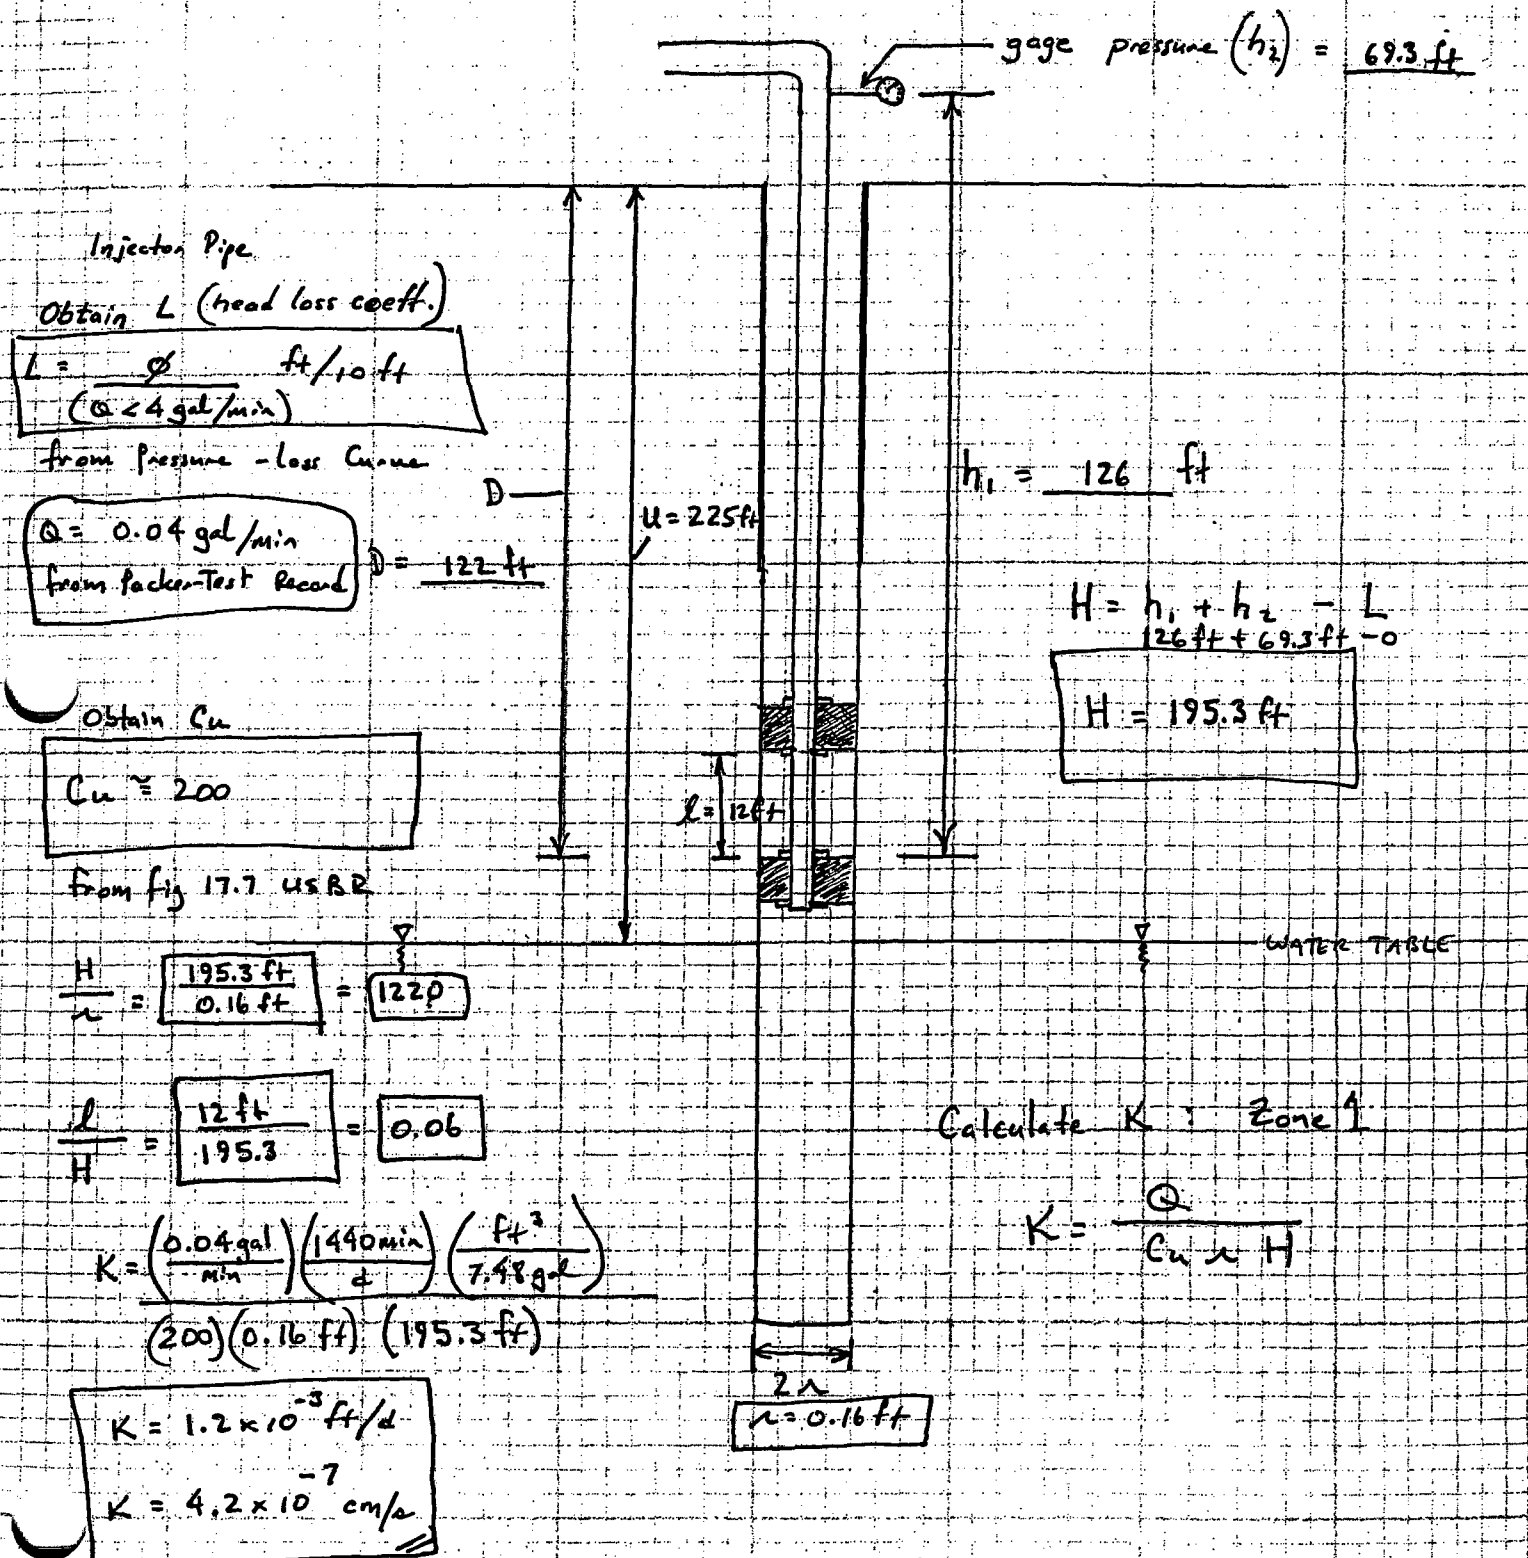 gage pressure (h₂) = 69.3 ft
Injector Pipe
Obtain L (head loss coeff.)
L = ∅ ft/10 ft
(Q < 4 gal/min)
from Pressure - loss Curve
Q = 0.04 gal/min
from Packer-Test Record
D
D = 122 ft
U = 225 ft
h₁ = 126 ft
H = h₁ + h₂ - L
126 ft + 69.3 ft - 0
H = 195.3 ft
Obtain Cu
Cu ≅ 200
from fig 17.7 USBR
l = 12 ft
WATER TABLE
H/r = 195.3 ft/0.16 ft = 1220
l/H = 12 ft/195.3 = 0.06
Calculate K : Zone 1
K = Q/Cu r H
K = (0.04 gal/min)(1440 min/d)(ft³/7.48 gal)
(200)(0.16 ft)(195.3 ft)
K = 1.2 x 10⁻³ ft/d
K = 4.2 x 10⁻⁷ cm/s
2r
r = 0.16 ft